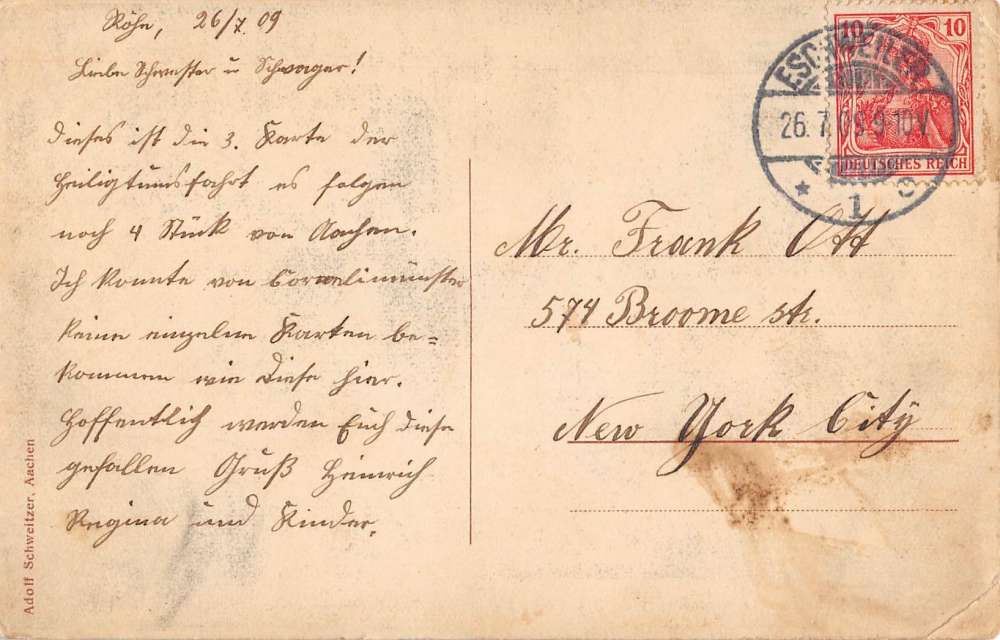 Röhe, 26/7. 09
Liebe Schwester u Schwager!
dieses ist die 3. Karte der
Heiligtumsfahrt es folgen
noch 4 Stück von Aachen.
Ich konnte von Cornelimünster
keine einzelne Karten be=
kommen wie diese hier.
Hoffentlich werden Euch diese
gefallen Gruß Heinrich
Regina und Kinder.
Adolf Schweitzer, Aachen
10 10
DEUTSCHES REICH
ESCHWEILER
26.7.09.9-10V.
* 1
Mr. Frank Ott
574 Broome str.
New York City